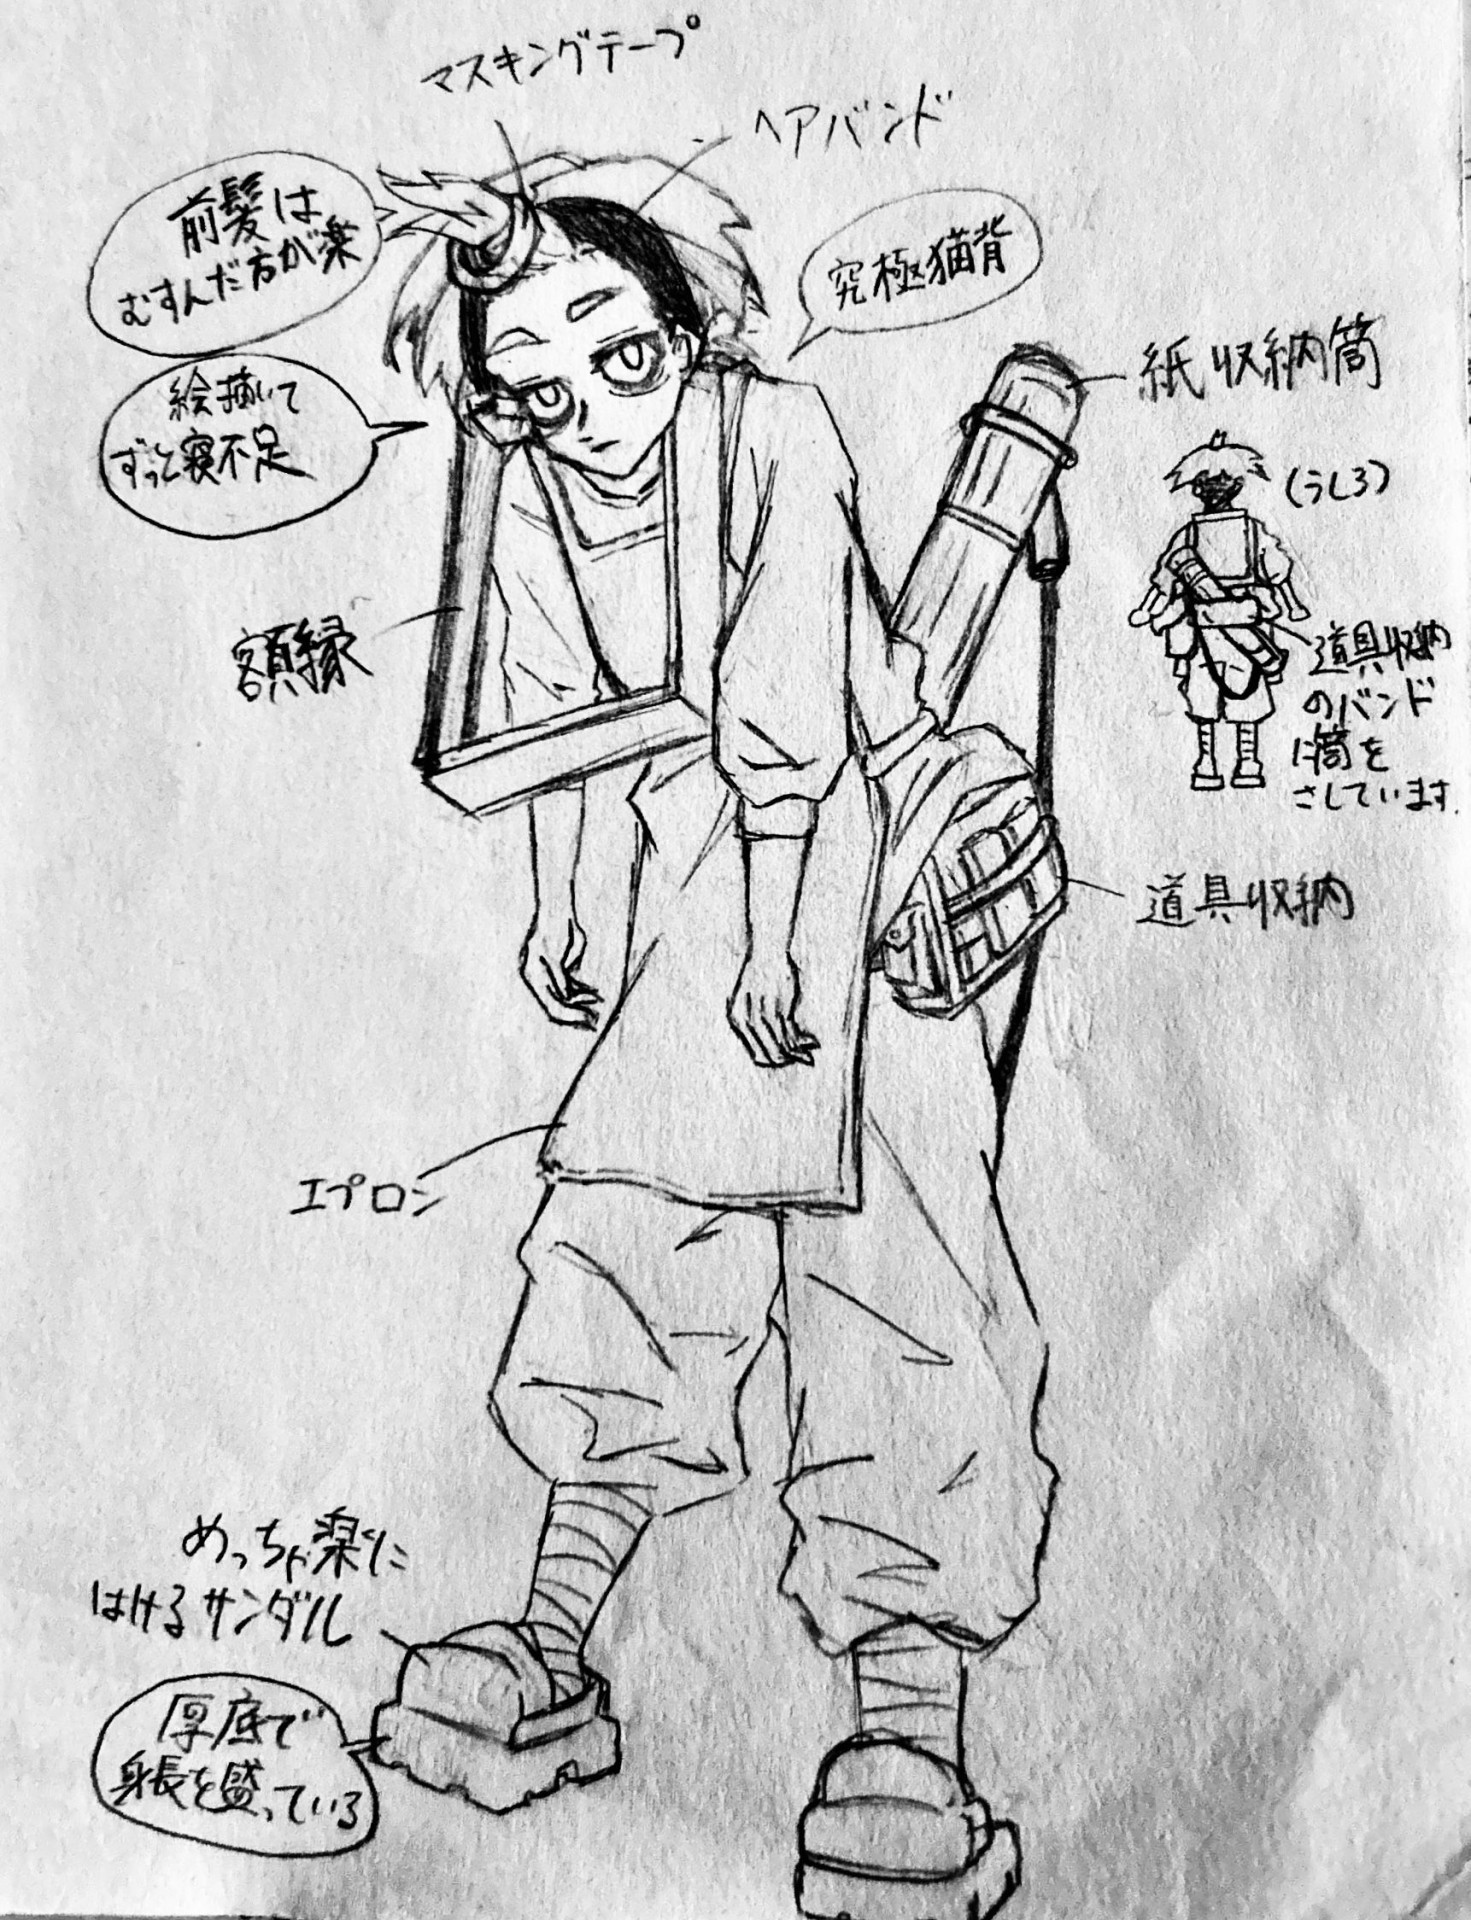 マスキングテープ
ヘアバンド
前髪は
むすんだ方が楽
究極猫背
紙収納筒
絵描いて
ずっと寝不足
(うしろ)
額縁
道具収納
のバンド
に筒を
さしています.
道具収納
エプロン
めっちゃ楽に
はけるサンダル
厚底で
身長を盛っている